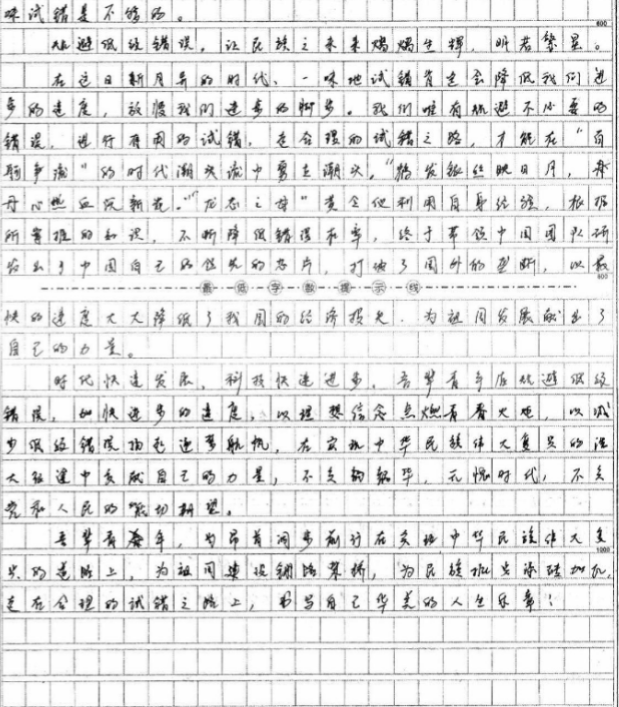 味试错是不够的。
600
规避低级错误，让民族之未来熠熠生辉，明若繁星。
在这日新月异的时代，一味地试错肯定会降低我们进
步的速度，放慢我们进步的脚步。我们唯有规避不必要的
错误，进行有用的试错，走合理的试错之路，才能在“百
舸争流”的时代潮头浪中勇立潮头，“稿发银丝映日月，丹
丹心热血沃新花。”“龙芯之母”黄令仪利用自身经验，根据
所掌握的知识，不断降低错误概率，终于带领中国团队研
发出了中国自己的领先的芯片，打破了国外的垄断，以最
最低字数提示线
800
快的速度大大降低了我国的经济损失，为祖国发展献出了
自己的力量。
时代快速发展，科技快速进步，吾辈青年应规避低级
错误，加快进步的速度，以理想信念点燃青春火炬，以减
少低级错误扬起逐梦航帆，在实现中华民族伟大复兴的浩
大征途中贡献自己的力量，不负韶华，无愧时代，不负
党和人民的殷切期望。
吾辈青年，当昂首阔步前行在实现中华民族伟大复
1000
兴的道路上，为祖国建设铺路架桥，为民族振兴添砖加瓦，
走在合理的试错之路上，书写自己华美的人生乐章！